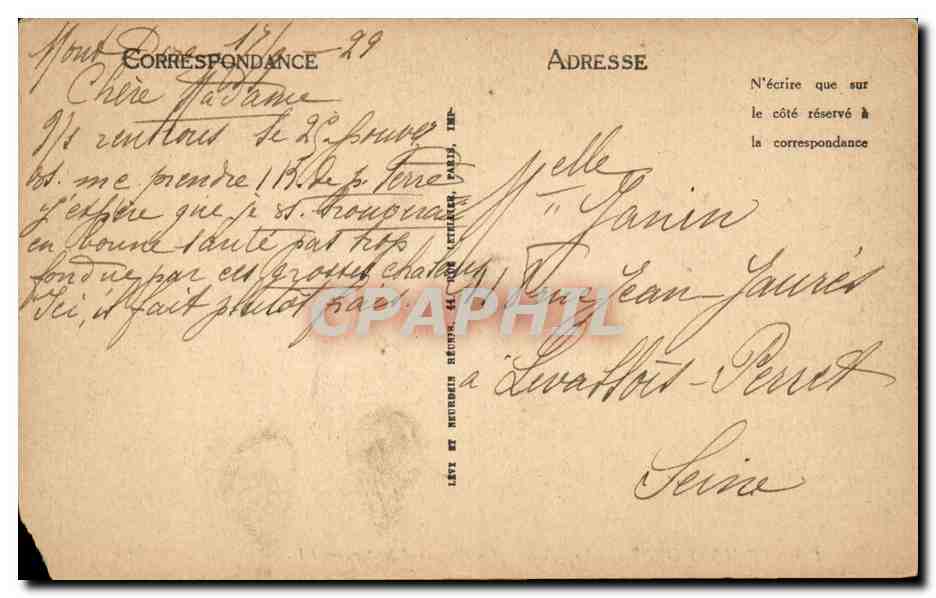 Mont Dore 17/9 - 29
CORRESPONDANCE
Chère Madame
N/s rentrons le 25. pouvez
vs. me prendre 1 15. de p. Terre
J'espère que je vs. trouverai
en bonne santé pas trop
fondue par ces grosses chaleurs
Ici, il fait plutôt frais.
LÉVY ET NEURDEIN RÉUNIS, 44, RUE LETELLIER, PARIS, IMP.
ADRESSE
N'écrire que sur
le côté réservé à
la correspondance
Melle
Janin
Rue Jean-Jaurès
à Levallois-Perret
Seine
CPAPHIL